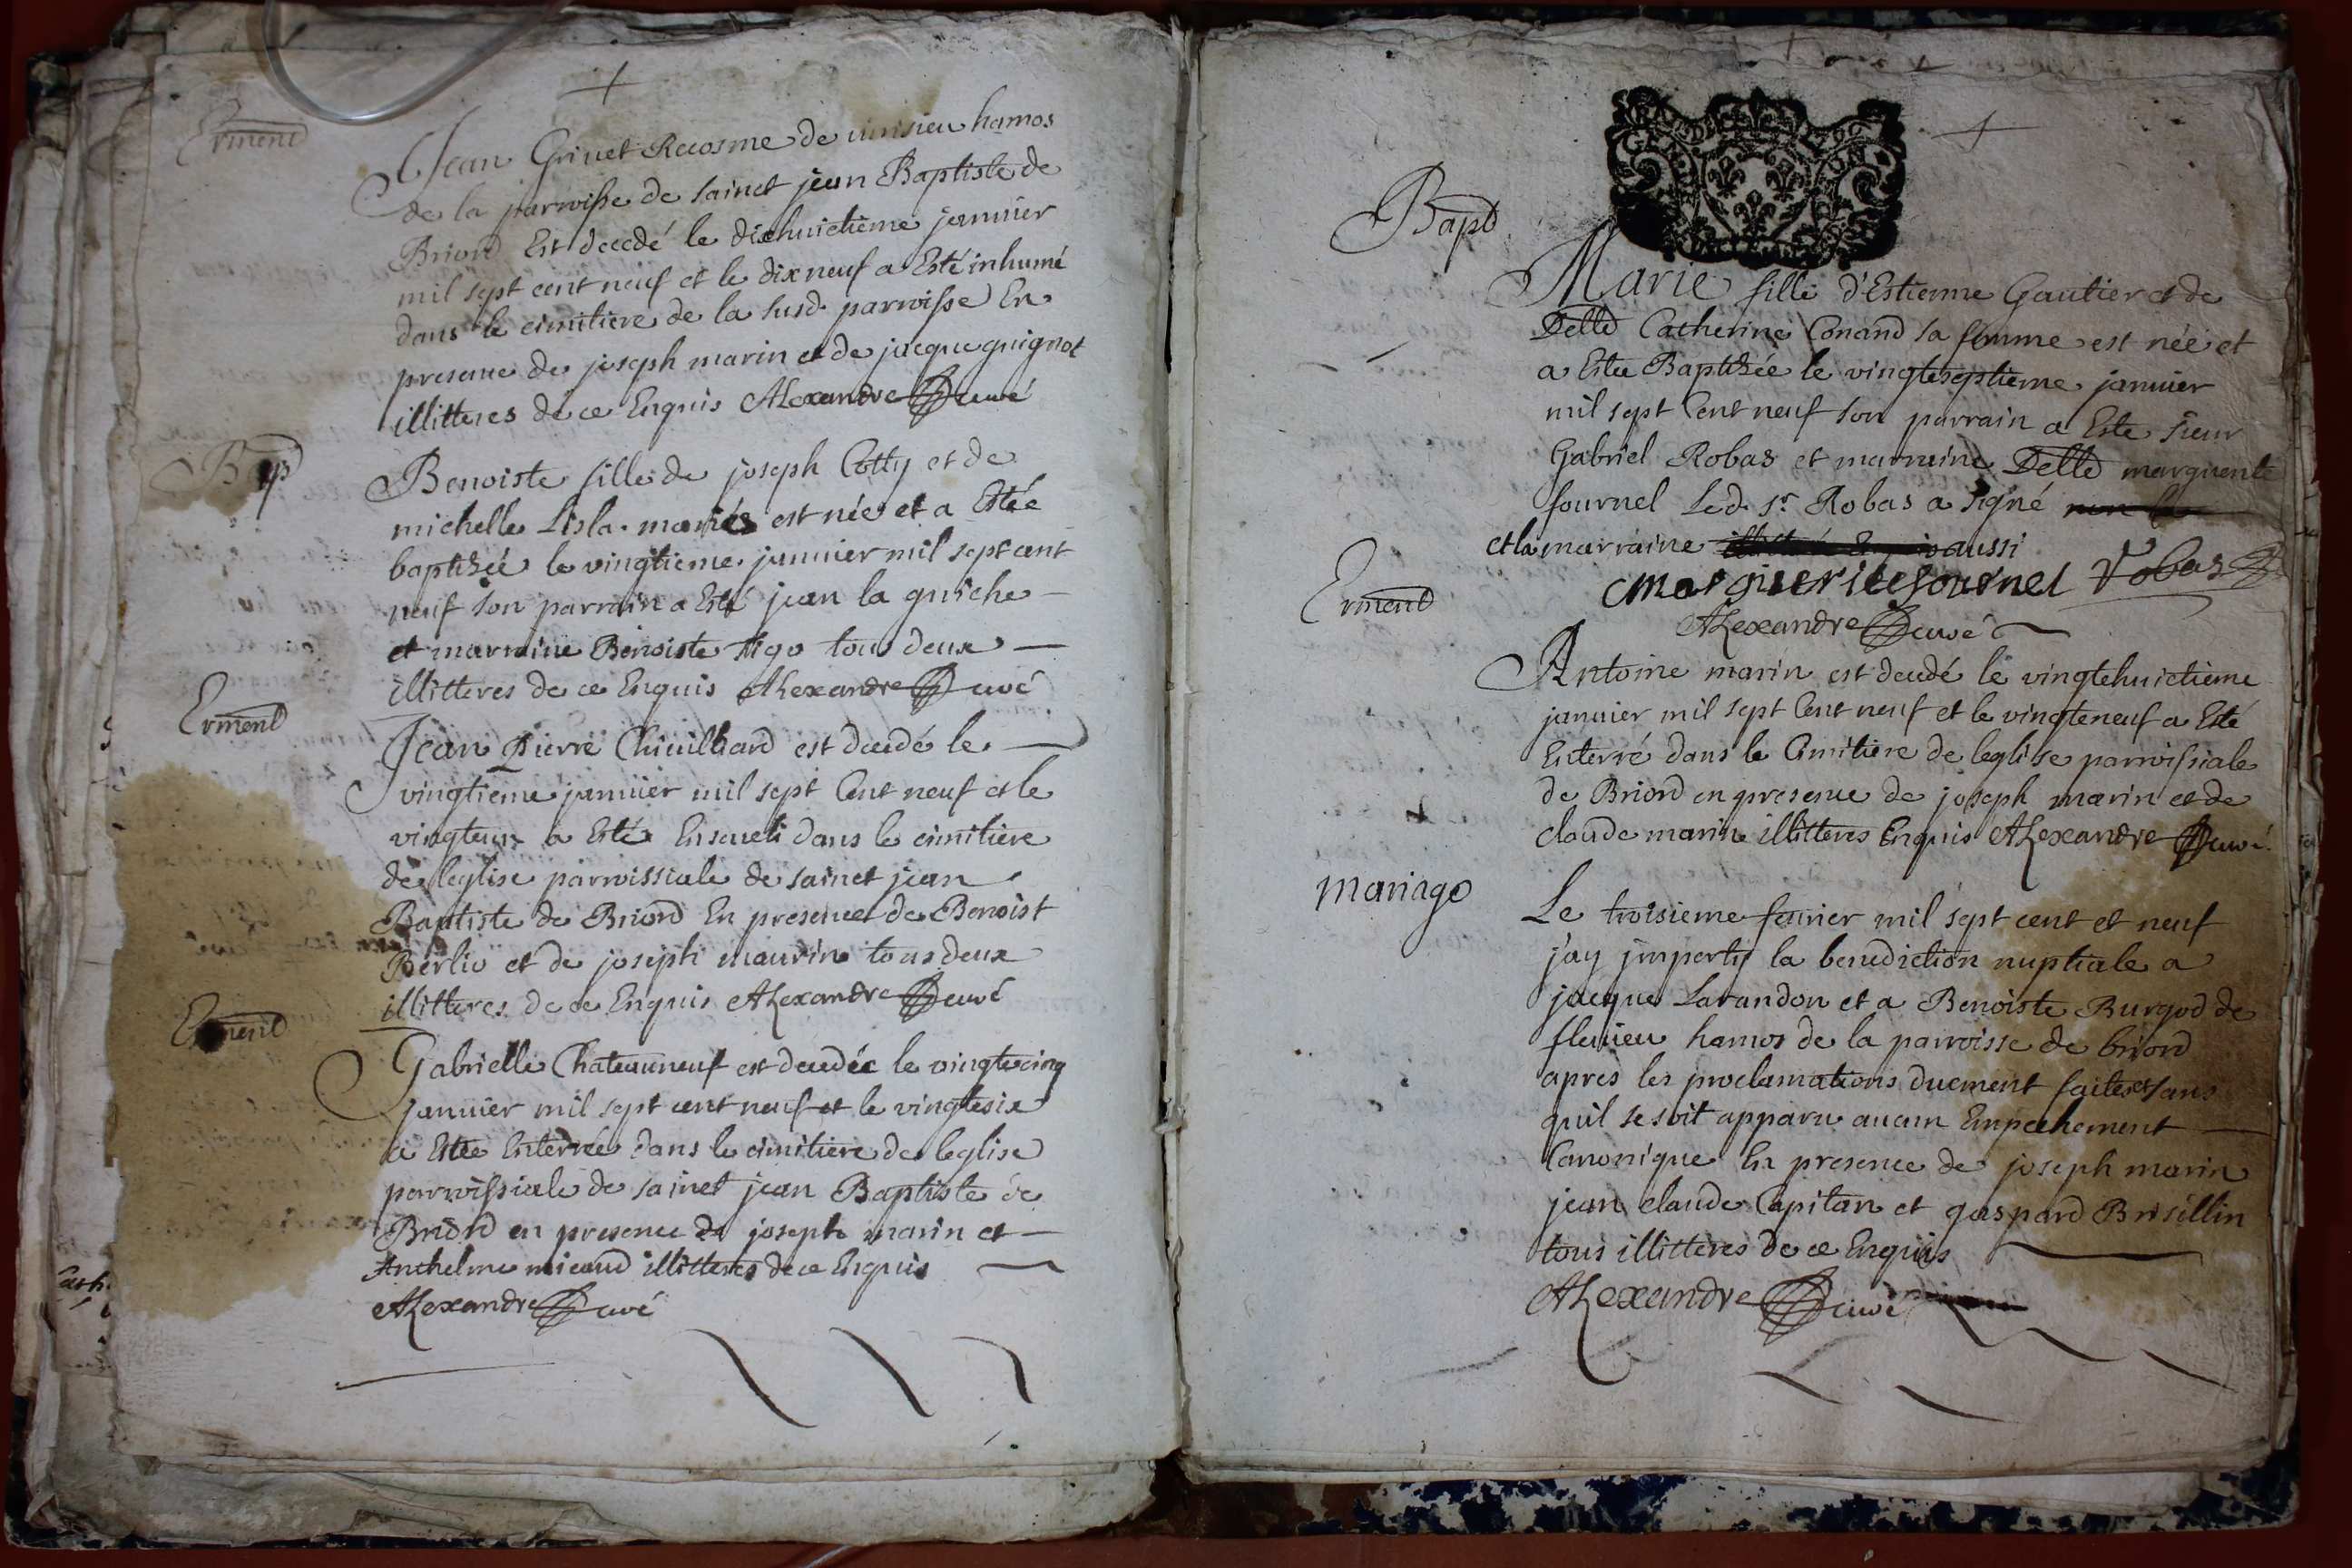 +
Erment
Jean Grinet Recosme de hamos
de la parroisse de sainct jean Baptiste de
Briord Est decedé le dixhuictieme januier
mil sept cent neuf et le dixneuf a Esté inhumé
dans le cimitiere de la susd. parroisse En
presence de joseph marin et de jacque guignot
illitteres de ce Enquis Alexandre curé
Bap
Benoiste fille de joseph Cotty et de
michelle Lisla mariés est née et a Estée
baptisée le vingtieme januier mil sept cent
neuf son parrain a Esté jean la guiche
et marraine Benoiste tous deux
illitteres de ce Enquis Alexandre curé
Erment
Jean Pierre Chiuilliard est decedé le
vingtieme januier mil sept Cent neuf et le
vingteun a Esté Enseueli dans le cimitiere
de leglise parroissiale de sainct jean
Baptiste de Briord En presence de Benoist
Berlio et de joseph maurin tous deux
illitteres de ce Enquis Alexandre curé
Erment
Gabrielle Chateauneuf est decedée le vingtecinq
januier mil sept cent neuf et le vingtesix
a Estée Enterrée dans le cimitiere de leglise
parroissiale de sainct jean Baptiste de
Briord en presence de joseph marin et
Anthelme micaud illitteres de ce Enquis
Alexandre curé
+
Bapt
Marie fille d'Estienne Gautier et de
Delle Catherine Conand sa femme est née et
a Estée Baptisée le vingteseptieme januier
mil sept Cent neuf son parrain a Esté sieur
Gabriel Robas et marraine Delle marguerite
fournel Led. sr. Robas a signé non la
et la marraine illitteré Enquis aussi
Marguerite fournel Robas
Alexandre curé
Erment
Antoine marin est decedé le vingtehuictieme
januier mil sept Cent neuf et le vingteneuf a Esté
Enterré dans le Cimitiere de leglise parroissiale
de Briord en presence de joseph marin et de
claude marin illitteres Enquis Alexandre curé
Mariage
Le troisieme feurier mil sept cent et neuf
j'ay jmperty la benediction nuptiale a
jacque Larandon et a Benoiste Burgod de
fleuieu hamos de la parroisse de briord
apres les proclamations duement faites et sans
quil se soit apparu aucun Empechement
Canonique En presence de joseph marin
jean claude Capitan et gaspard Brisillin
tous illitteres de ce Enquis
Alexandre curé